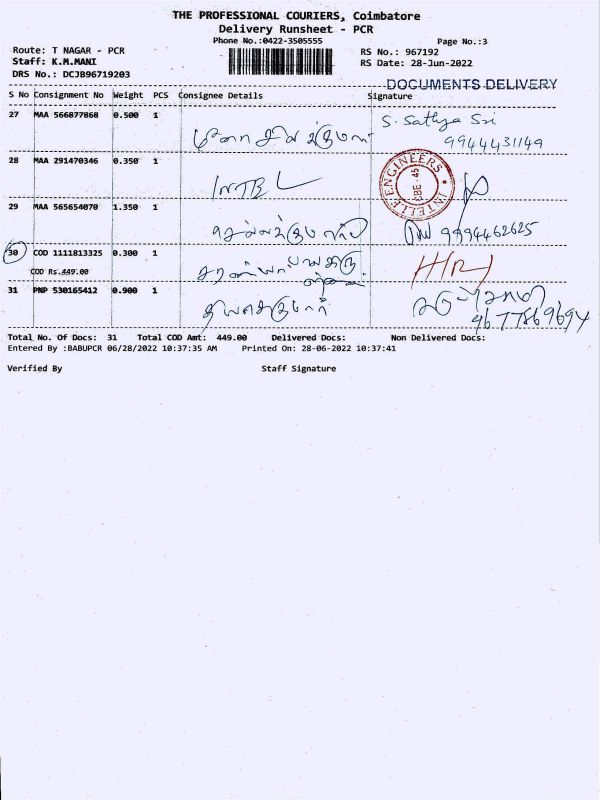 THE PROFESSIONAL COURIERS, Coimbatore
Delivery Runsheet - PCR
Phone No.:0422-3505555
Page No.:3
Route: T NAGAR - PCR
RS No.: 967192
Staff: K.M.MANI
RS Date: 28-Jun-2022
DRS No.: DCJB96719203
DOCUMENTS DELIVERY
S No Consignment No Weight PCS Consignee Details Signature
27 MAA 566877868 0.500 1
S. Sathya Sri
9944431149
28 MAA 291470346 0.350 1
INTEL
INTELLE ENGINEERS
CBE-45
29 MAA 565654070 1.350 1
9994462625
30 COD 1111813325 0.300 1
COD Rs.449.00
31 PNP 530165412 0.900 1
9677869694
Total No. Of Docs: 31 Total COD Amt: 449.00 Delivered Docs: Non Delivered Docs:
Entered By :BABUPCR 06/28/2022 10:37:35 AM Printed On: 28-06-2022 10:37:41
Verified By Staff Signature